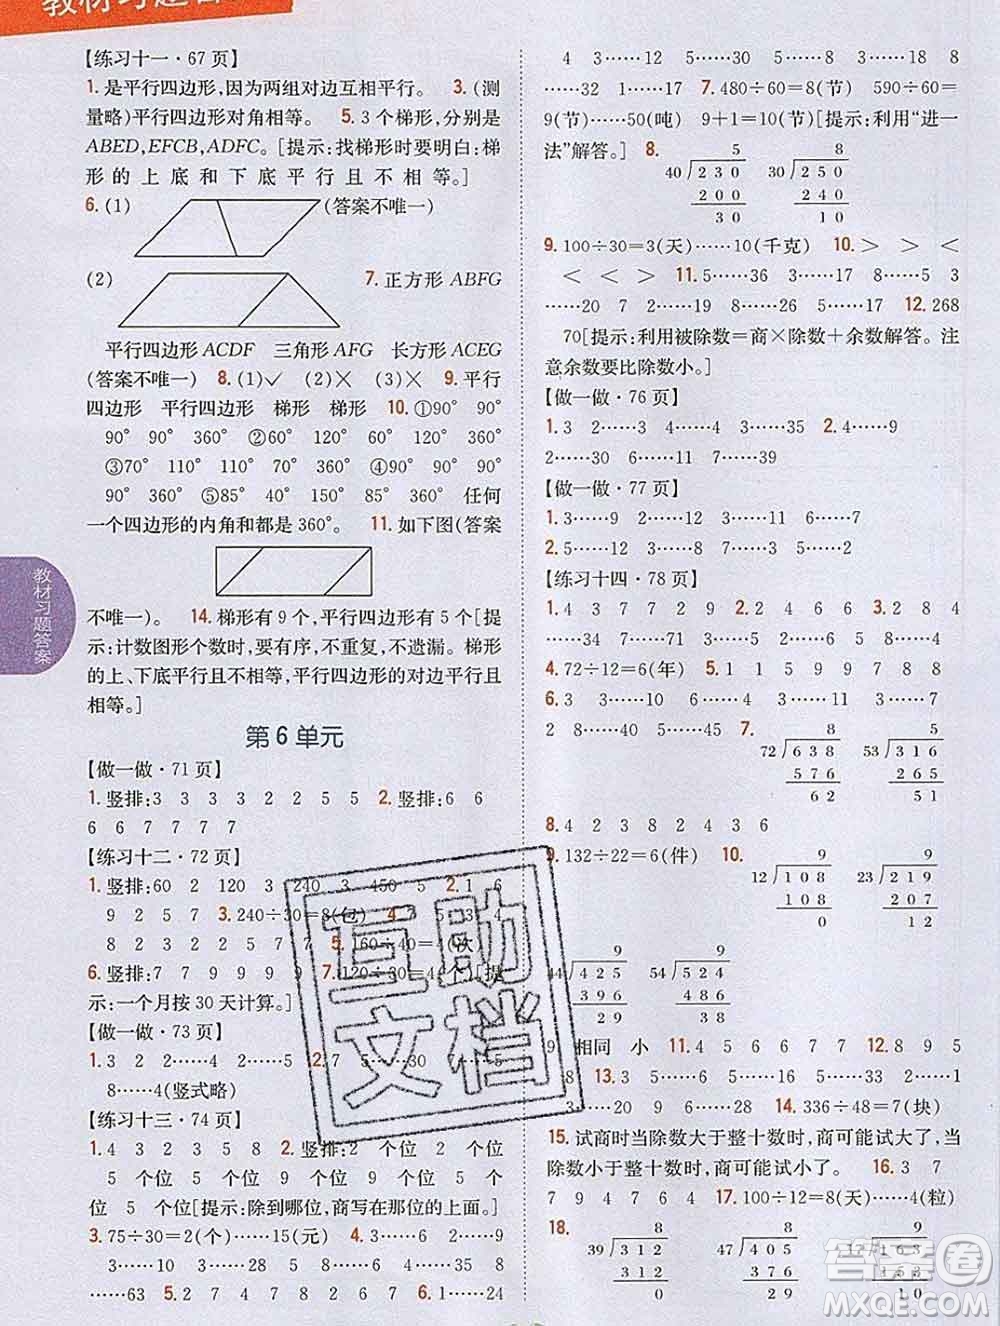 【练习十一·67页】
1.是平行四边形,因为两组对边互相平行。 3.(测
量略)平行四边形对角相等。 5.3个梯形,分别是
ABED,EFCB,ADFC。[提示:找梯形时要明白:梯
形的上底和下底平行且不相等。]
6.(1) (答案不唯一)
(2) 7.正方形ABFG
平行四边形ACDF 三角形AFG 长方形ACEG
(答案不唯一) 8.(1)✓ (2)✕ (3)✕ 9.平行
四边形 平行四边形 梯形 梯形 10.①90° 90°
90° 90° 360° ②60° 120° 60° 120° 360°
③70° 110° 110° 70° 360° ④90° 90° 150°
30° 360° ⑤85° 40° 150° 85° 360° 任何
一个四边形的内角和都是360°。 11.如下图(答案
不唯一)。 14.梯形有9个,平行四边形有5个[提
示:计数图形个数时,要有序,不重复,不遗漏。梯形
的上、下底平行且不相等,平行四边形的对边平行且
相等。]
第6单元
【做一做·71页】
1.竖排:3 3 3 3 2 2 5 5 2.竖排:6 6
6 6 7 7 7 7
【练习十二·72页】
1.竖排:60 2 120 3 240 3 450 5 2.1 6
9 2 5 8 3.240÷30=8(包) 4.7 5 3 9
8 2 2 3 2 2 5.160÷40=4(次)
6.竖排:7 7 9 9 9 9 7.120÷30=4(个)[提
示:一个月按30天计算。]
【做一做·73页】
1.3 2 2……4 5……5 2.7 5……5
8……4(竖式略)
【练习十三·74页】
1.4 2 3 3 5 8 2.竖排:2 个位 2 个位
1 个位 5 个位 2 个位 6 个位 5 个
位 5 个位[提示:除到哪位,商写在那位的上面。]
3.75÷30=2(个)……15(元) 4.3……6 2……9
3……10 5……18 4……15 8……10 1
……63 5.2 7 2 4 4 9 6.1……24
4 3……12 5……30 5……13 8
……32 1……17 7.480÷60=8(节) 590÷60=
9(节)……50(吨) 9+1=10(节)[提示:利用“进一
法”解答。] 8.
5
40 230
200
30
8
30 250
240
10
9.100÷30=3(天)……10(千克) 10.> > <
< < > 11.5……36 3……17 8……5 3
……20 7 2……20 5……17 12.268
70[提示:利用被除数=商×除数+余数解答。注
意余数要比除数小。]
【做一做·76页】
1.3 2……5 4……4 3……35 2.4……9
2……30 6……7 7……39
【做一做·77页】
1.3……9 2……12 3……11 6……7
2.5……12 6……11 7……3 5……2
【练习十四·78页】
1.4 3 7 9 5 6 2.8 7 3.2 8 4
……34 6……17 5……31
4.72÷12=6(年) 5.1……11 6……2 4……4
6.3 3……5 10 6……5 7……5
2 8……40 2……45 7.
8
72 638
576
62
5
53 316
265
51
8.4 2 3 8 2 4 3 6
9.132÷22=6(件) 10.
9
12 108
108
0
9
23 219
207
12
9
44 425
396
29
9
54 524
486
38
9 相同 小 11.4 5 6 7 12.8 9 5
8 13.3 5……5 6……15 8……1
3……30 9 9……2 14.336÷48=7(块)
15.试商时当除数大于整十数时,商可能试大了,当
除数小于整十数时,商可能试小了。 16.3 7
7 9 4 7 6 4 17.100÷12=8(天)……4(粒)
18.
8
39 312
312
0
8
47 405
376
29
9
10
教材习题答案
互助文档
答案圈
MXQE.COM